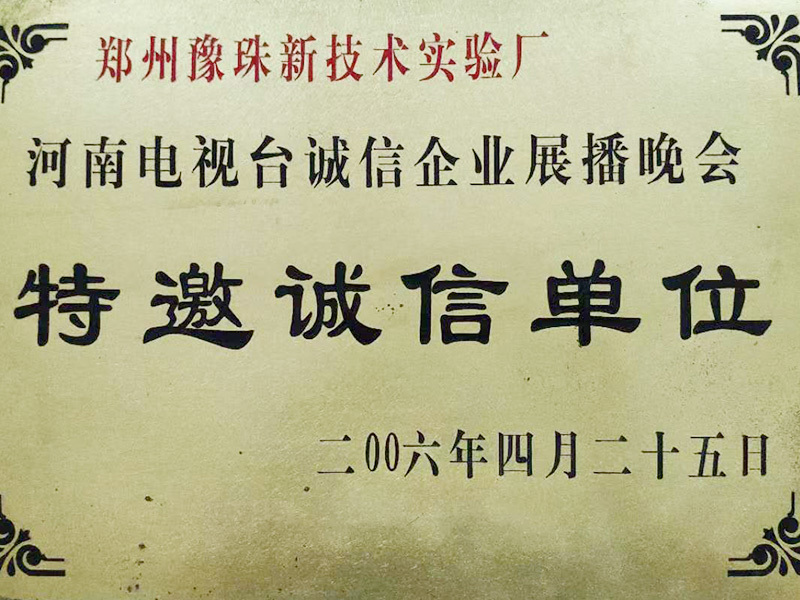 郑州豫珠新技术实验厂
河南电视台诚信企业展播晚会
特邀诚信单位
二00六年四月二十五日